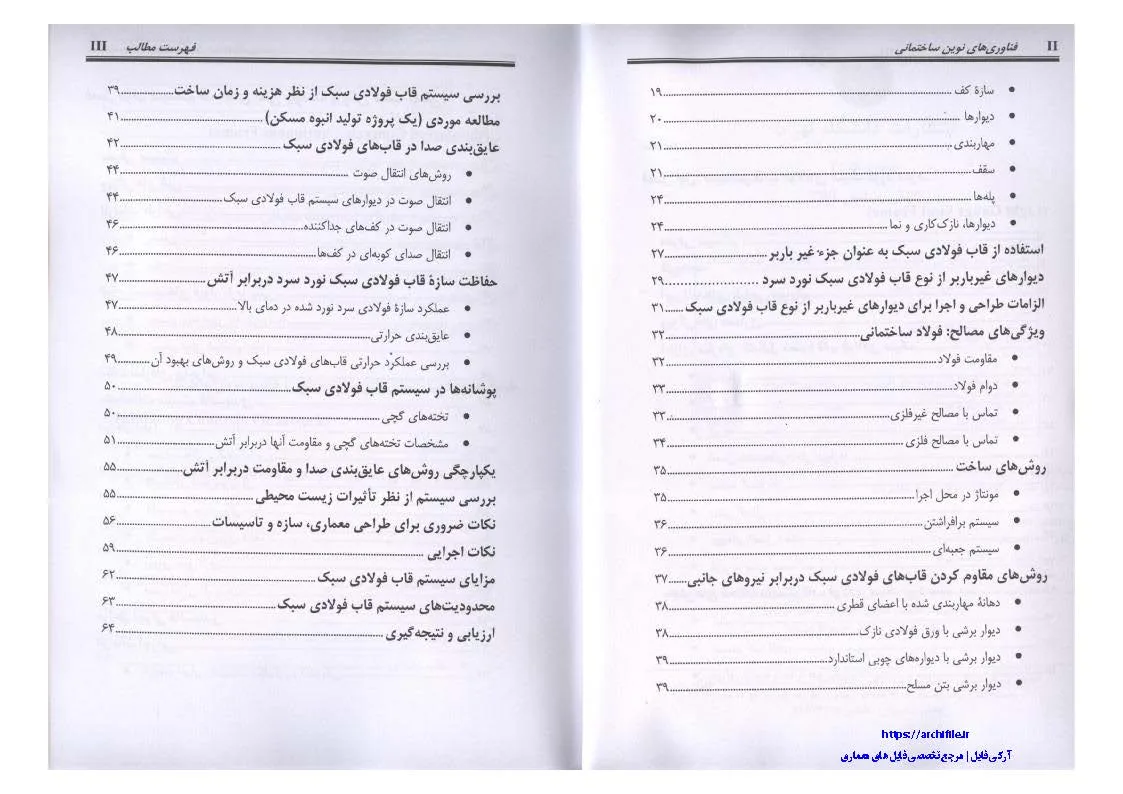 II فناوری‌های نوین ساختمانی
• سازهٔ کف ........ ۱۹
• دیوارها ........ ۲۰
• مهاربندی ........ ۲۱
• سقف ........ ۲۱
• پله‌ها ........ ۲۴
• دیوارها، نازک‌کاری و نما ........ ۲۴
استفاده از قاب فولادی سبک به عنوان جزء غیر باربر ........ ۲۷
دیوارهای غیرباربر از نوع قاب فولادی سبک نورد سرد ........ ۲۹
الزامات طراحی و اجرا برای دیوارهای غیرباربر از نوع قاب فولادی سبک ........ ۳۱
ویژگی‌های مصالح: فولاد ساختمانی ........ ۳۲
• مقاومت فولاد ........ ۳۲
• دوام فولاد ........ ۳۳
• تماس با مصالح غیرفلزی ........ ۳۳
• تماس با مصالح فلزی ........ ۳۴
روش‌های ساخت ........ ۳۵
• مونتاژ در محل اجرا ........ ۳۵
• سیستم برافراشتن ........ ۳۶
• سیستم جعبه‌ای ........ ۳۶
روش‌های مقاوم کردن قاب‌های فولادی سبک دربرابر نیروهای جانبی ........ ۳۷
• دهانهٔ مهاربندی شده با اعضای قطری ........ ۳۸
• دیوار برشی با ورق فولادی نازک ........ ۳۸
• دیوار برشی با دیواره‌های چوبی استاندارد ........ ۳۹
• دیوار برشی بتن مسلح ........ ۳۹
https://archifile.ir
آرکی فایل | مرجع تخصصی فایل های معماری
فهرست مطالب III
بررسی سیستم قاب فولادی سبک از نظر هزینه و زمان ساخت ........ ۳۹
مطالعه موردی (یک پروژه تولید انبوه مسکن) ........ ۴۱
عایق‌بندی صدا در قاب‌های فولادی سبک ........ ۴۲
• روش‌های انتقال صوت ........ ۴۴
• انتقال صوت در دیوارهای سیستم قاب فولادی سبک ........ ۴۴
• انتقال صوت در کف‌های جداکننده ........ ۴۶
• انتقال صدای کوبه‌ای در کف‌ها ........ ۴۶
حفاظت سازهٔ قاب فولادی سبک نورد سرد دربرابر آتش ........ ۴۷
• عملکرد سازهٔ فولادی سرد نورد شده در دمای بالا ........ ۴۷
• عایق‌بندی حرارتی ........ ۴۸
• بررسی عملکرد حرارتی قاب‌های فولادی سبک و روش‌های بهبود آن ........ ۴۹
پوشانه‌ها در سیستم قاب فولادی سبک ........ ۵۰
• تخته‌های گچی ........ ۵۰
• مشخصات تخته‌های گچی و مقاومت آنها دربرابر آتش ........ ۵۱
یکپارچگی روش‌های عایق‌بندی صدا و مقاومت دربرابر آتش ........ ۵۵
بررسی سیستم از نظر تأثیرات زیست محیطی ........ ۵۵
نکات ضروری برای طراحی معماری، سازه و تاسیسات ........ ۵۶
نکات اجرایی ........ ۵۹
مزایای سیستم قاب فولادی سبک ........ ۶۲
محدودیت‌های سیستم قاب فولادی سبک ........ ۶۳
ارزیابی و نتیجه‌گیری ........ ۶۴